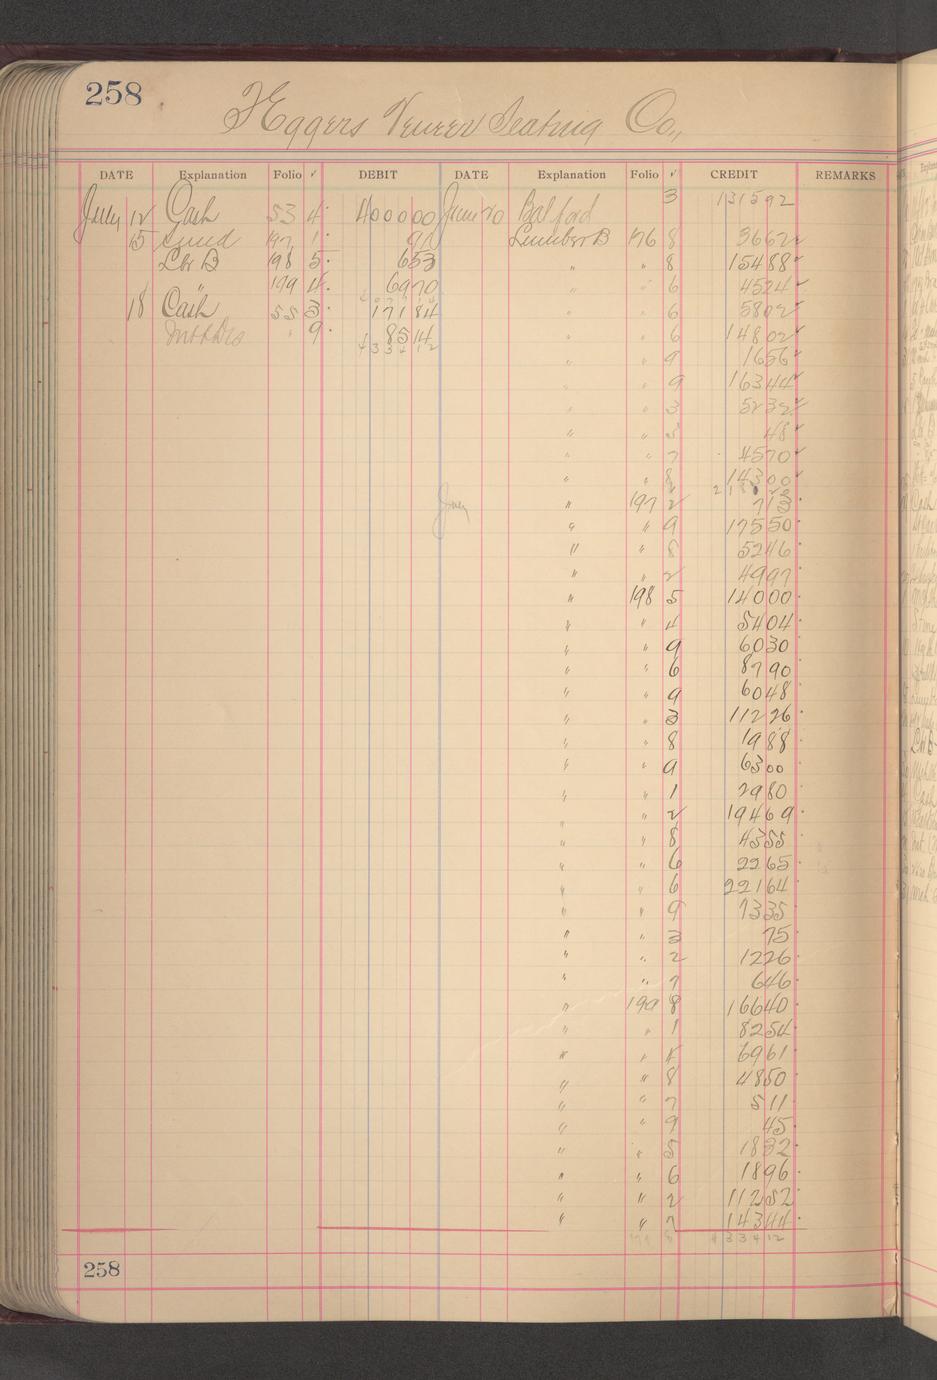 258
F Eggers Veneer Seating Co.,
DATE Explanation Folio ✓ DEBIT DATE Explanation Folio ✓ CREDIT REMARKS
July 12 Cash 53 4 400000 June 20 Bal ford 3 131592
15 Sund 197 1 Lumber B 176 8 3662
Lbr B 198 5 653 " " 8 15488
" 199 4 6970 " " 6 4524
18 Cash 55 3 17184 " " 6 5802
" 9 8514 " " 6 14802
433412
" " 9 1656
" " 9 16344
" " 3 5232
" " 5 48
" " 7 4570
" " 8 14300
July " 197 2 713
" " 9 17550
" " 8 5246
" " 2 4997
" 198 5 14000
" " 4 5404
" " 9 6030
" " 6 8790
" " 9 6048
" " 3 11226
" " 8 1988
" " 9 6300
" " 1 2980
" " 2 19469
" " 8 4355
" " 6 2265
" " 6 22164
" " 9 7335
" " 3 75
" " 2 1226
" " 7 646
" 199 8 16640
" " 1 8254
" " 4 6961
" " 8 4850
" " 7 511
" " 9 45
" " 5 1832
" " 6 1896
" " 2 11252
" " 7 14344
433412
258